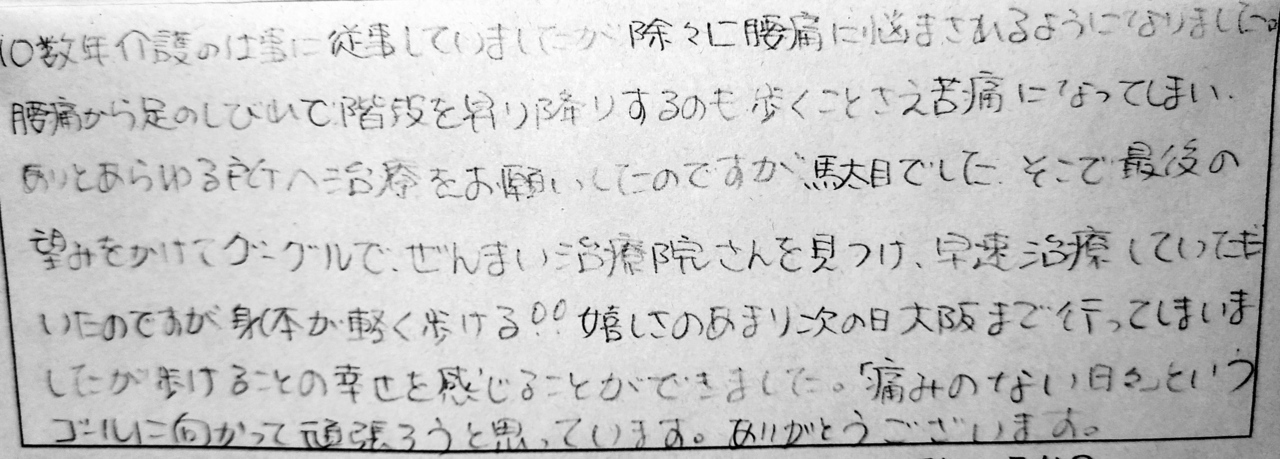 10数年介護の仕事に従事していましたが除々に腰痛に悩まされるようになりました。
腰痛から足のしびれで階段を昇り降りするのも歩くことさえ苦痛になってしまい、
ありとあらゆる所へ治療をお願いしたのですが、駄目でした。そこで最後の
望みをかけてグーグルで、ぜんまい治療院さんを見つけ、早速治療していただ
いたのですが身体が軽く歩ける!!嬉しさのあまり次の日大阪まで行ってしまいま
したが歩けることの幸せを感じることができました。「痛みのない日々」という
ゴールに向かって頑張ろうと思っています。ありがとうございます。